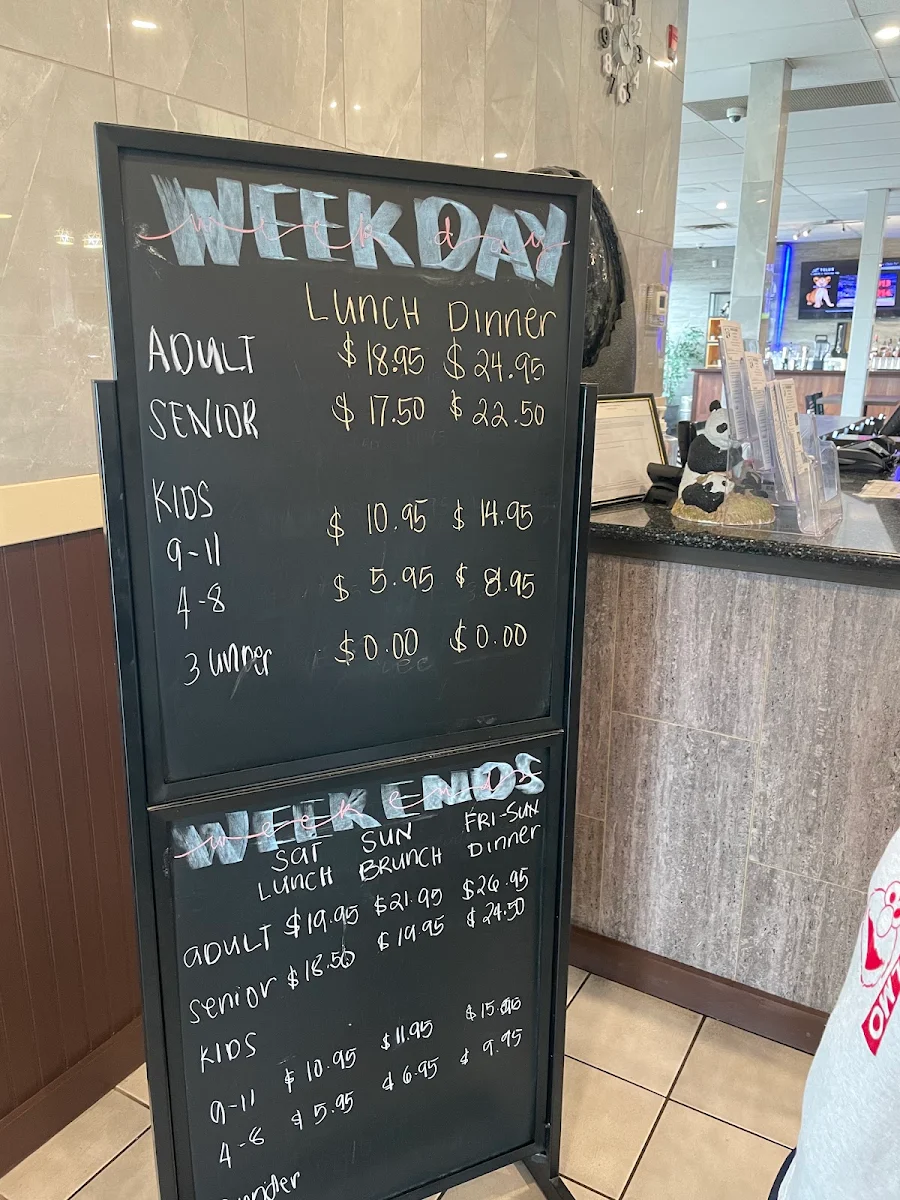 WEEKDAY
week day
LUNCH DINNER
ADULT $18.95 $24.95
SENIOR $17.50 $22.50
KIDS
9-11 $10.95 $14.95
4-8 $5.95 $8.95
3 under $0.00 $0.00
WEEKENDS
weekends
SAT SUN FRI-SUN
LUNCH BRUNCH DINNER
ADULT $19.95 $21.95 $26.95
Senior $18.50 $19.95 $24.50
KIDS
9-11 $10.95 $11.95
4-8 $5.95 $6.95 $9.95
under
TELUS